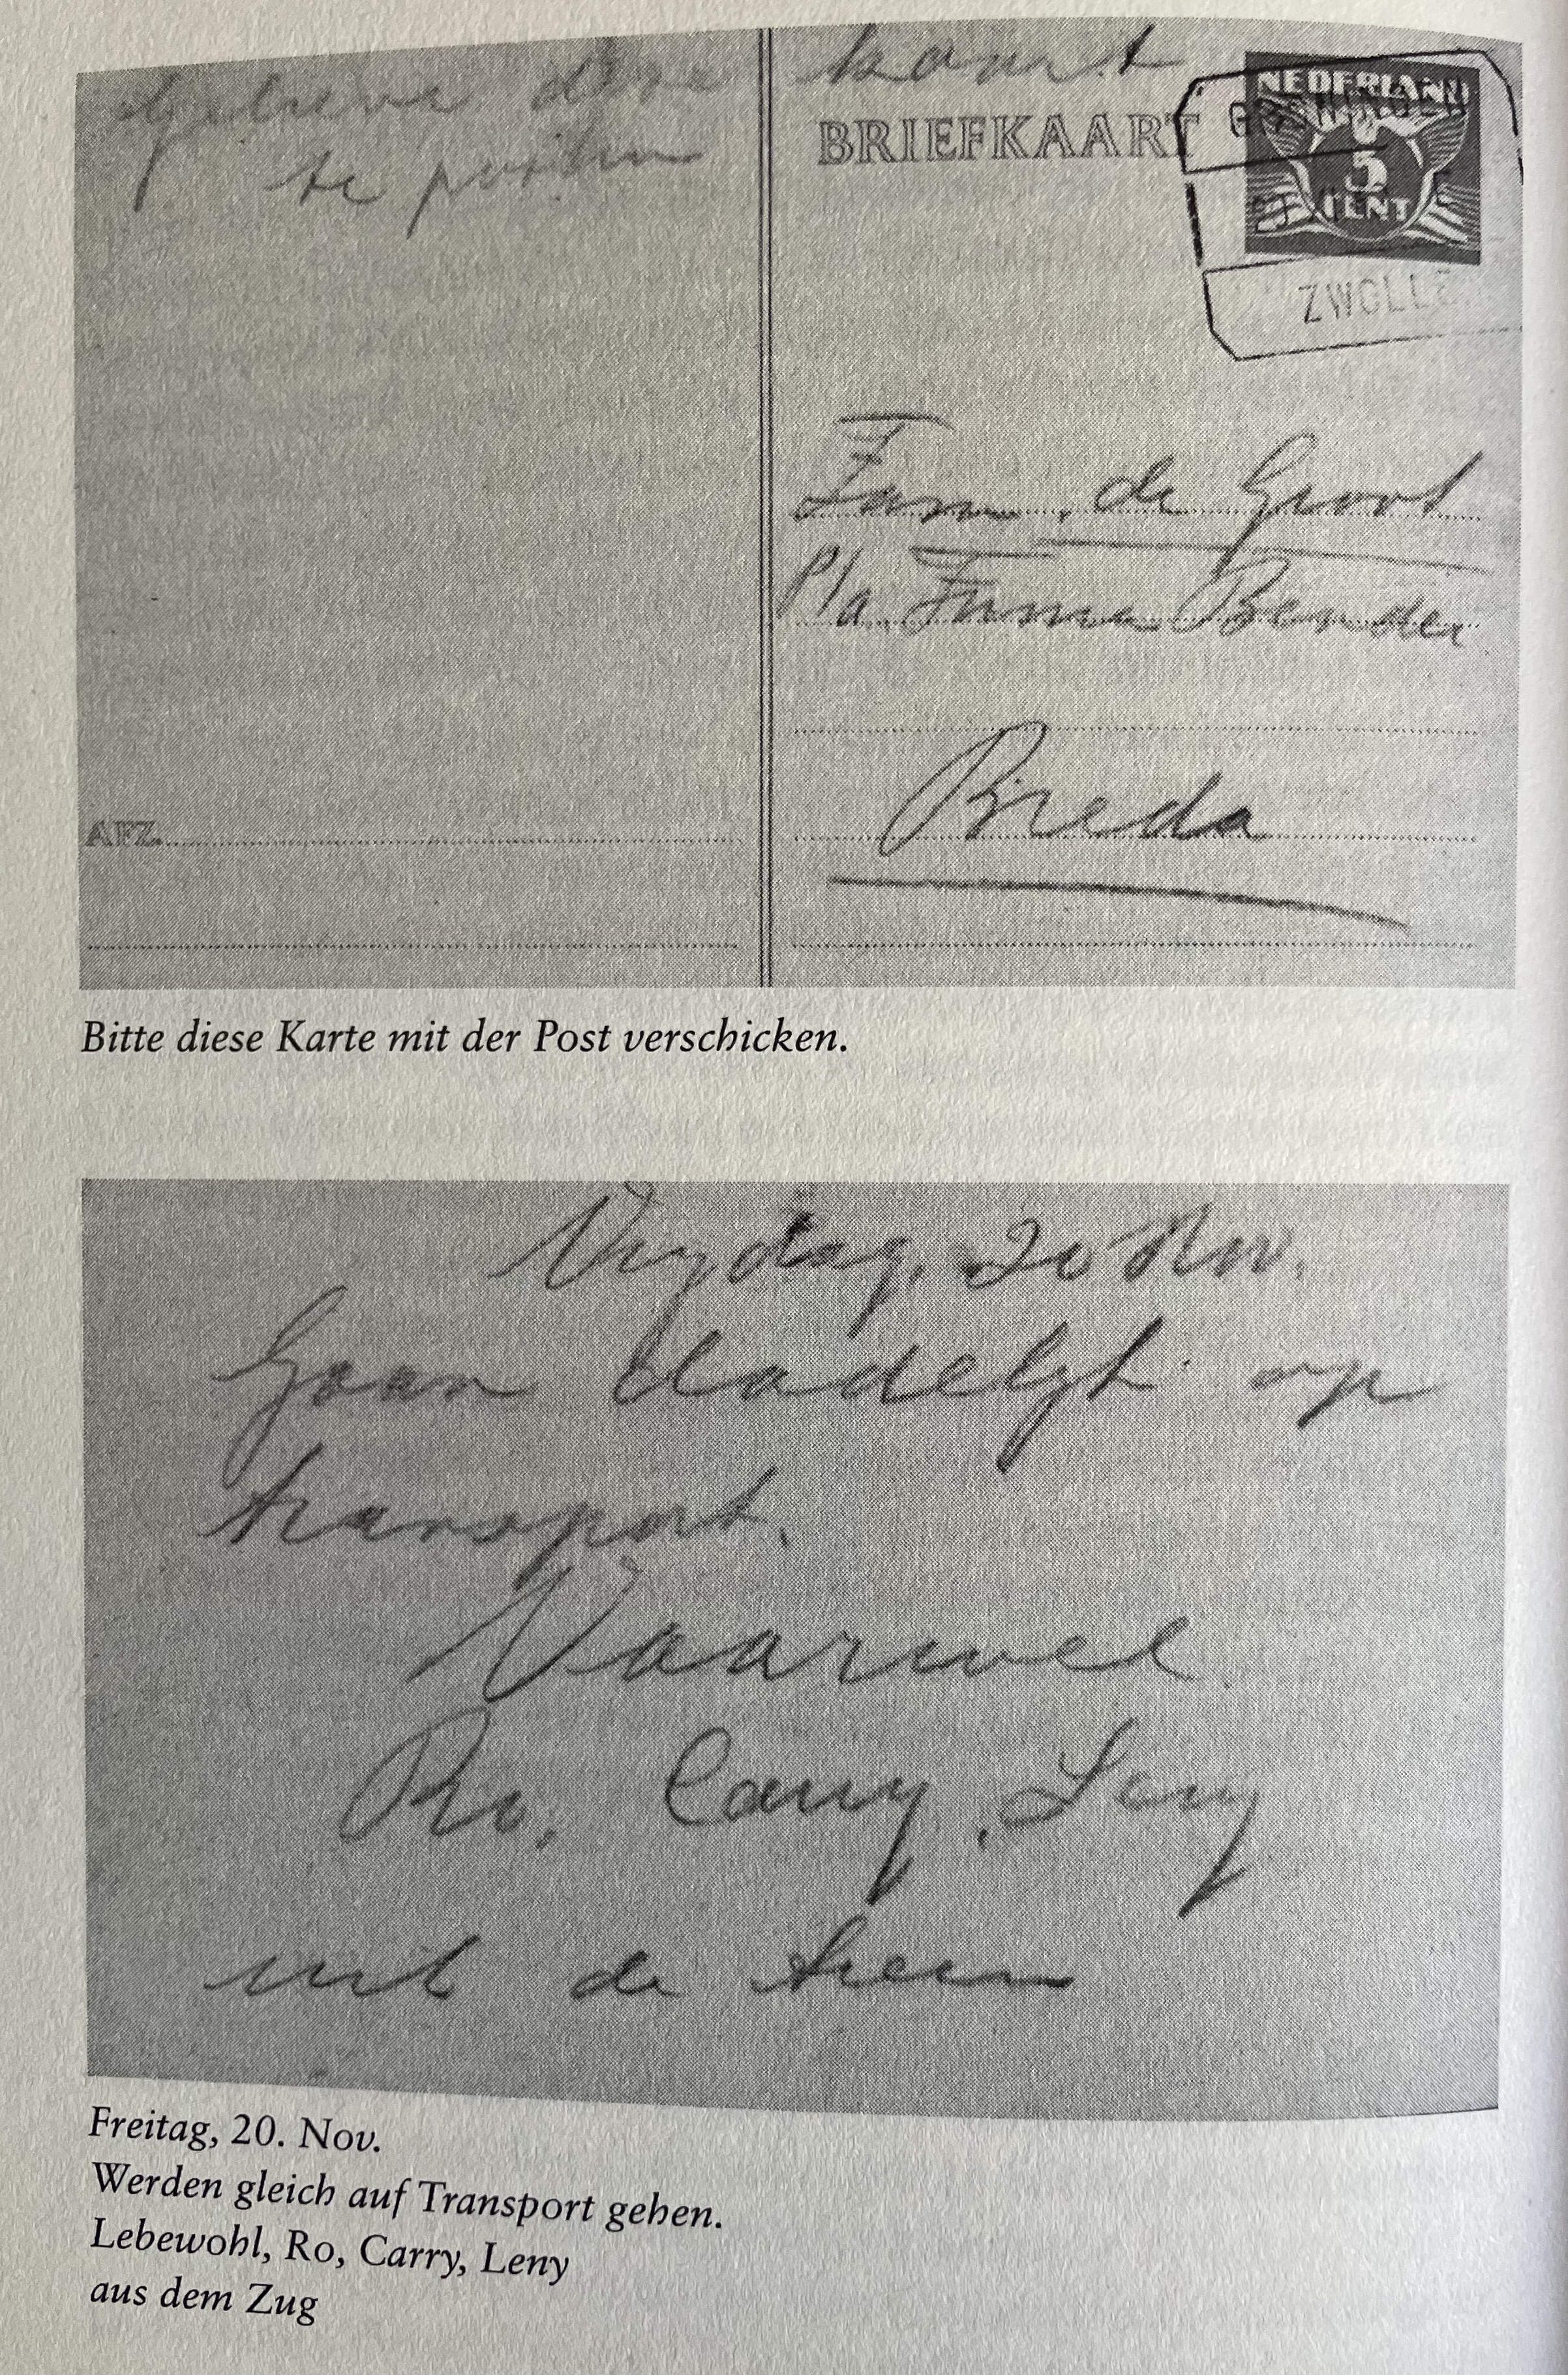 Gelieve deze kaart
te posten
BRIEFKAART
NEDERLAND
5
CENT
ZWOLLE
Fam. de Groot
p/a Firma Bender
Breda
AFZ.
Bitte diese Karte mit der Post verschicken.
Vrijdag, 20 Nov.
Gaan dadelijk op
transport.
Vaarwel
Ro, Carry, Leny
uit de trein
Freitag, 20. Nov.
Werden gleich auf Transport gehen.
Lebewohl, Ro, Carry, Leny
aus dem Zug